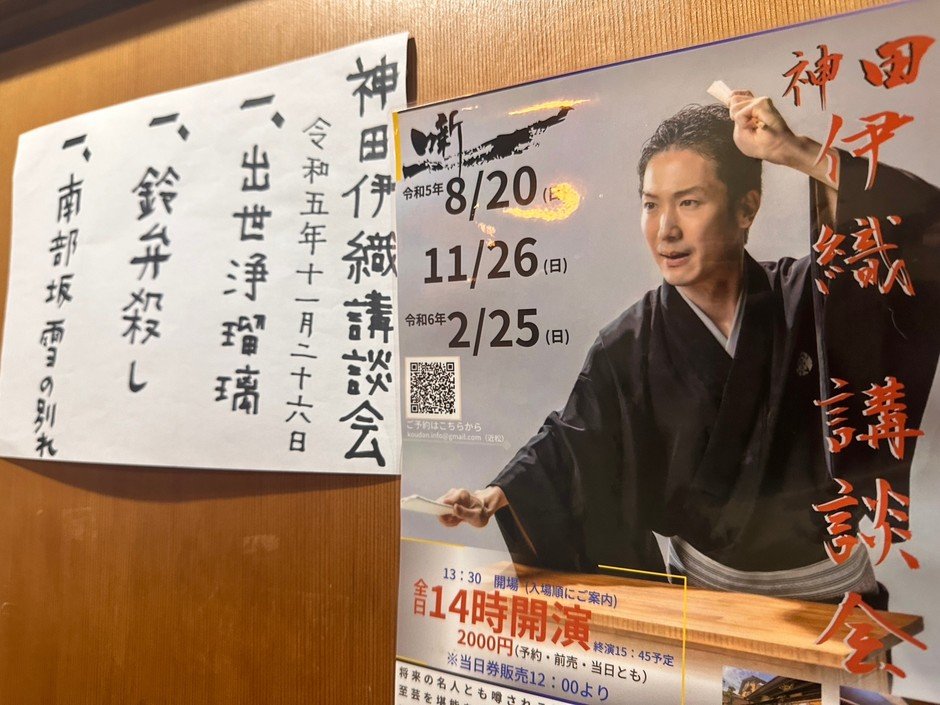 神田伊織講談会
令和五年十一月二十六日
一、出世浄瑠璃
一、鈴弁殺し
一、南部坂雪の別れ
神田伊織講談会
噺
令和5年 8/20(日)
11/26(日)
令和6年 2/25(日)
ご予約はこちらから
koudan.info@gmail.com(近松)
13:30 開場(入場順にご案内)
全日 14時開演 終演15:45予定
2000円(予約・前売・当日とも)
※当日券販売12:00より
将来の名人とも噂され
至芸を堪能